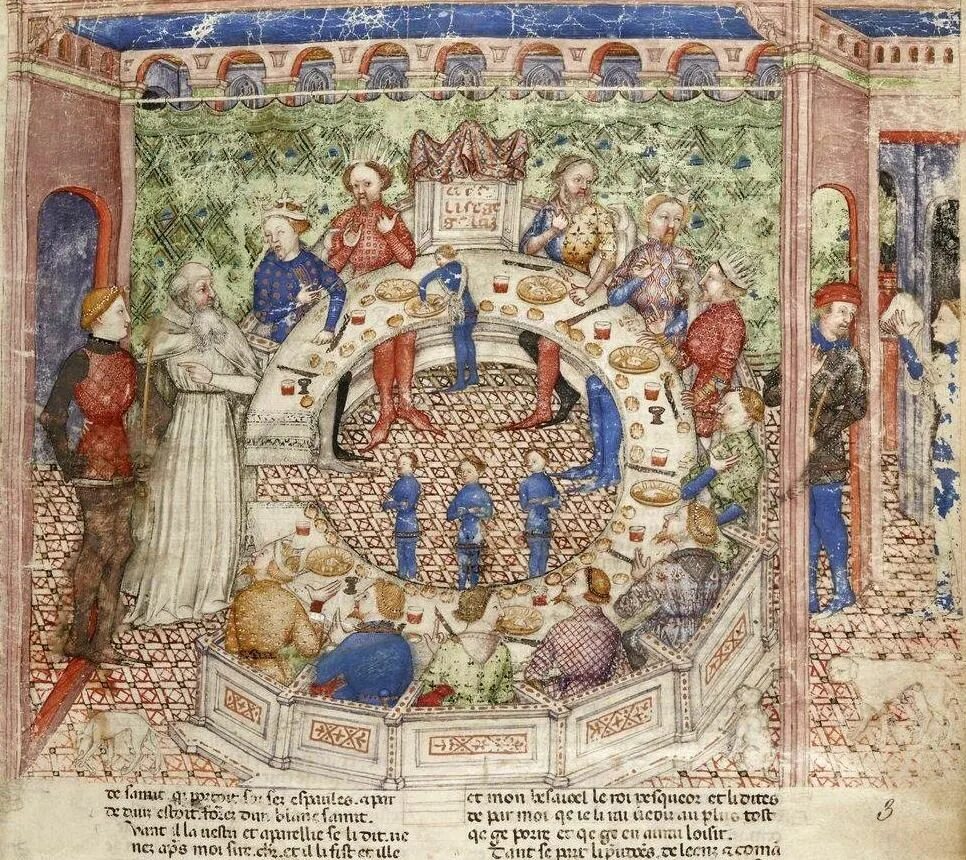 ce est
li sege
de samit q̄ portoit sor ses espaules. a par
de denz estoit forrez dun blanc samit.
Quant il la vestu et aparellie se li dit. ve
nez ap̄s moi sire. chr̄. et il si fist et il le
et mon besaioel le roi pescheor et li dites
de par moi qe ie li irai ueoir au plus tost
qe ge porre et qe ge en aurai loisir.
Tant se part li pseudres de leenz a coma
3